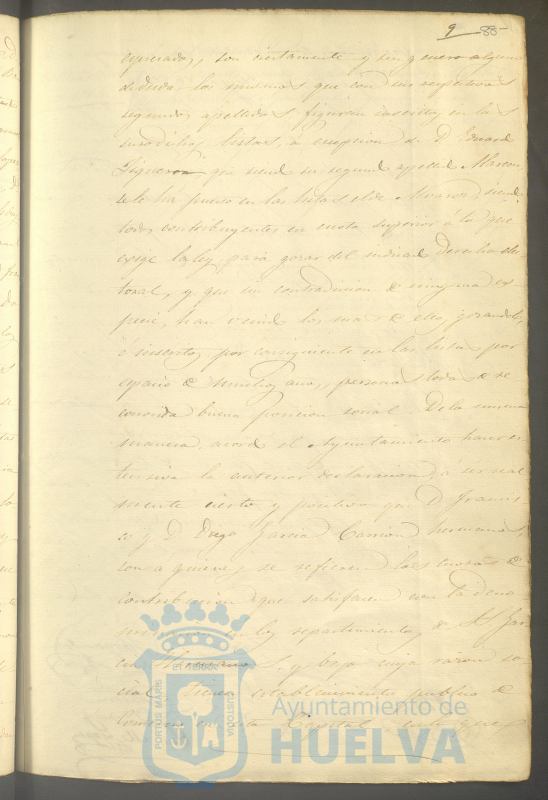 9 88
espresadas, son ciertamente y sin genero alguno
de duda los mismos que con sus respectivos
segundos apellidos figuran inscritos en las
susodichas listas, a escepcion de D. Eduard
Figueroa que siendo su segundo apellido
se le ha puesto en las listas el de Alvarez, siend
todos contribuyentes en cuota superior á la que
exige la ley, para gozar del indicado derecho elec
toral, y que sin contradiccion de ninguna es-
pecie, han venido los mas de ellos gozandole,
ó inscritos por consiguiente en las listas por
espacio de muchos años, personas todas de re
conocida buena posicion social. De la misma
manera, acordó el Ayuntamiento hacer es
tensiva la anterior declaracion, a ser real
mente cierto y positivo que D. Francis
co y D. Diego Garcia Carrion hermanos
son a quienes se refieren las cuotas de
contribucion que satisfacen con la deno
en los repartimientos de Gar
cia Hermanos, y bajo cuya razon so
cial tienen establecimiento publico de
comercio en esta Capital, sin que
PORTUS MARIS ET TERRAE CUSTODIA
Ayuntamiento de
HUELVA